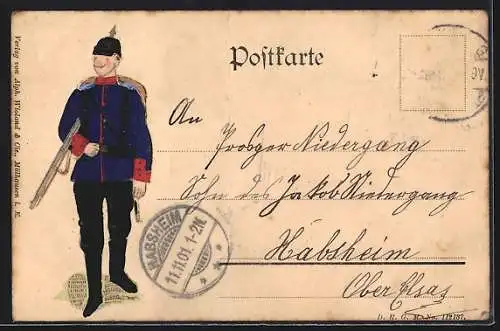 Postkarte
An
Prosper Niedergang
Sohn des Jakob Niedergang
Habsheim
Ober Elsas
HABSHEIM
11.11.01. 1-2N.
Verlag von Alph. Wioland & Cie., Mülhausen i. E.
D. R. G. M. No. 112137.